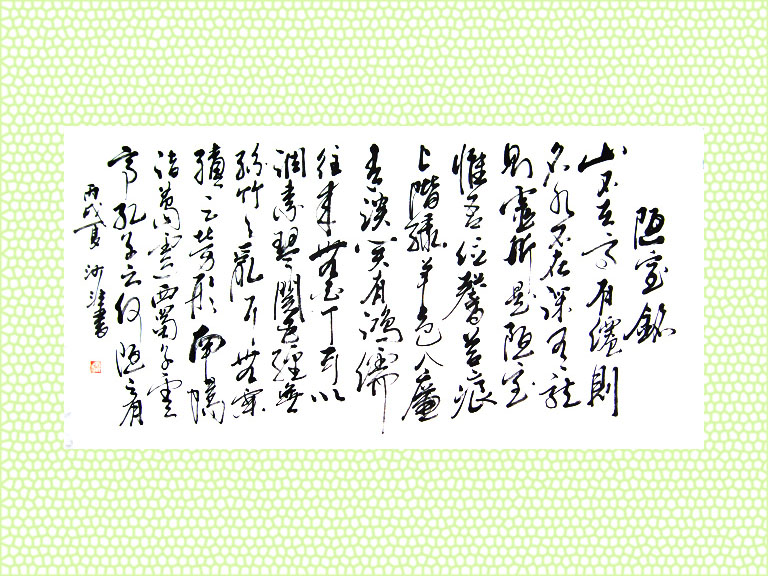 陋室銘
山不在高有僊則
名水不在深有龍
則靈斯是陋室
惟吾德馨苔痕
上階綠草色入簾
青談笑有鴻儒
往來無白丁可以
調素琴閱金經無
絲竹之亂耳無案
牘之勞形南陽
諸葛廬西蜀子雲
亭孔子云何陋之有
丙戌夏沙書